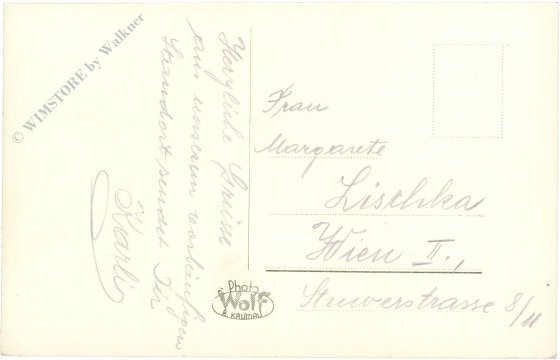 © WIMSTORE by Walkner
Herzliche Grüsse
aus unserem vorläufigen
Standort sendet Dir
Karli
Frau
Margarete
Lischka
Wien II.,
Stuwerstrasse 8/11
Photo
Wolf
B. KRUMAU